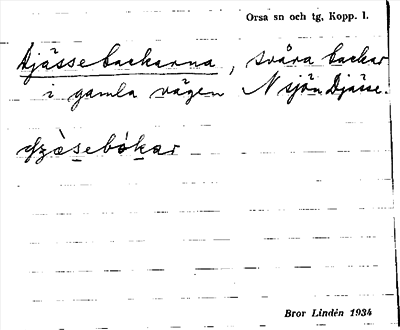 Orsa sn och tg, Kopp. l.
Djässebackarna, svåra backar
i gamla vägen N sjön Djässe.
Bror Lindén 1934